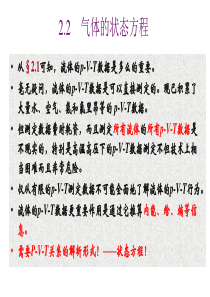 2.2 气体的状态方程
• 从§2.1可知，流体的p-V-T数据是多么的重要。
• 毫无疑问，流体的p-V-T数据是可以直接测定的。现已积累了
大量水、空气、氨和氟里昂等的p-V-T数据。
• 但测定数据费时耗资，而且测定所有流体的所有p-V-T数据是
不现实的，特别是高温高压下的p-V-T数据测定不但技术上相
当困难而且非常危险。
• 仅从有限的p-V-T测定数据不可能全面地了解流体的p-V-T行为。
• 流体的p-V-T数据更重要作用是通过它推算内能、焓、熵等信
息。
• 需要P-V-T关系的解析形式！——状态方程！